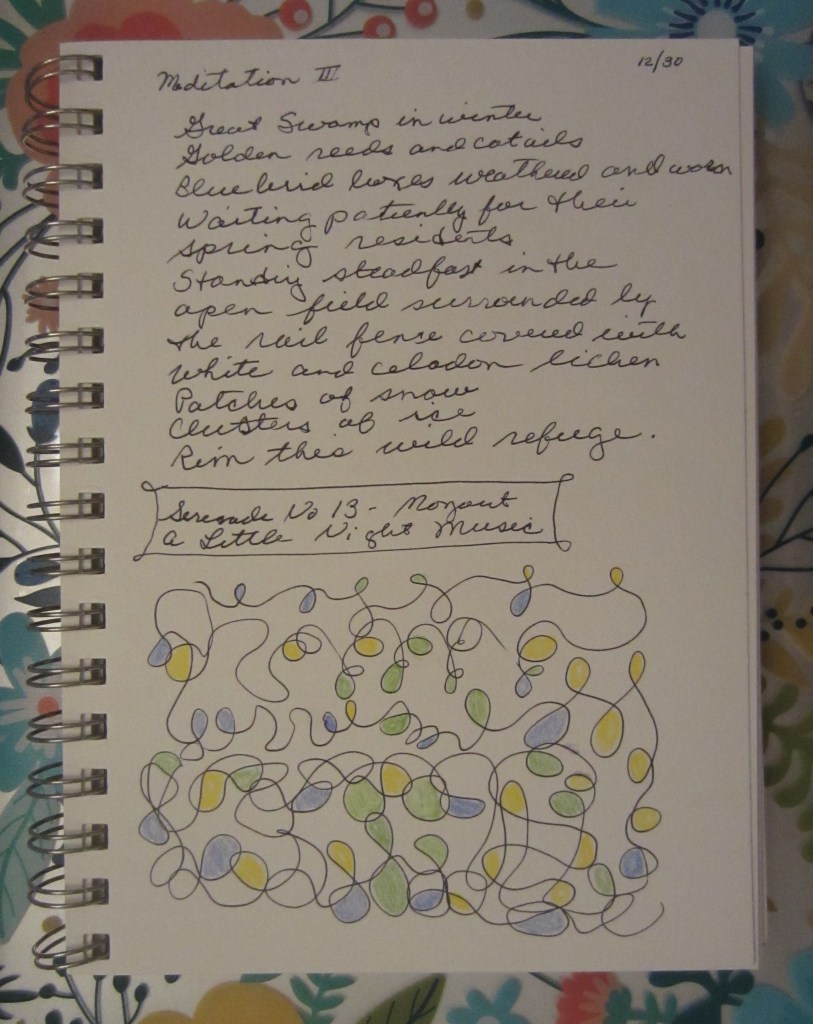 Meditation III
12/30
Great Swamp in winter
Golden reeds and catails
Bluebird boxes weathered and worn
Waiting patiently for their
spring residents
Standing steadfast in the
open field surrounded by
the rail fence covered with
white and celadon lichen
Patches of snow
Clusters of ice
Rim this wild refuge.
Serenade No 13 - Mozart
A Little Night Music